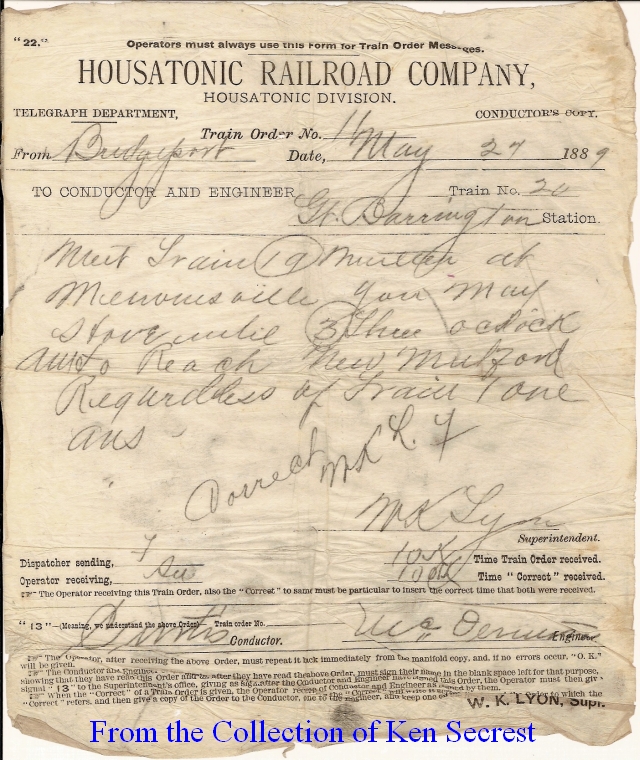 "22."
Operators must always use this Form for Train Order Messages.
HOUSATONIC RAILROAD COMPANY,
HOUSATONIC DIVISION.
TELEGRAPH DEPARTMENT,
CONDUCTOR'S COPY.
Train Order No. 16
From Bridgeport Date, May 27 1889
TO CONDUCTOR AND ENGINEER Train No. 20
Gt. Barrington Station.
Meet Train 19 at
you May
3 three oclock
to Reach New Mulford
Regardless of Train 1 one
ans
Correct
W K L. 7
W K Lyon
Superintendent.
Dispatcher sending, 7
Time Train Order received.
Operator receiving,
Time "Correct" received.
The Operator receiving this Train Order, also the "Correct" to same must be particular to insert the correct time that both were received.
"13"—(Meaning, we understand the above Order)— Train order No.
Curtis Conductor. Engineer
The Operator, after receiving the above Order, must repeat it back immediately from the manifold copy, and, if no errors occur, "O. K."
will be given.
The Conductor and Engineer
showing that they have read this Order and after they have read the above Order, must sign their name in the blank space left for that purpose,
signal "13" to the Superintendent's office, giving as sig. after the Conductor and Engineer have signed this Order, the Operator must then give
When the "Correct" of a Train Order is given, the Operator Conductor and Engineer as signed by them.
"Correct" refers, and then give a copy of the Order to the Conductor, one to the engineer, and keep one Order to which the
W. K. LYON, Supt.
From the Collection of Ken Secrest